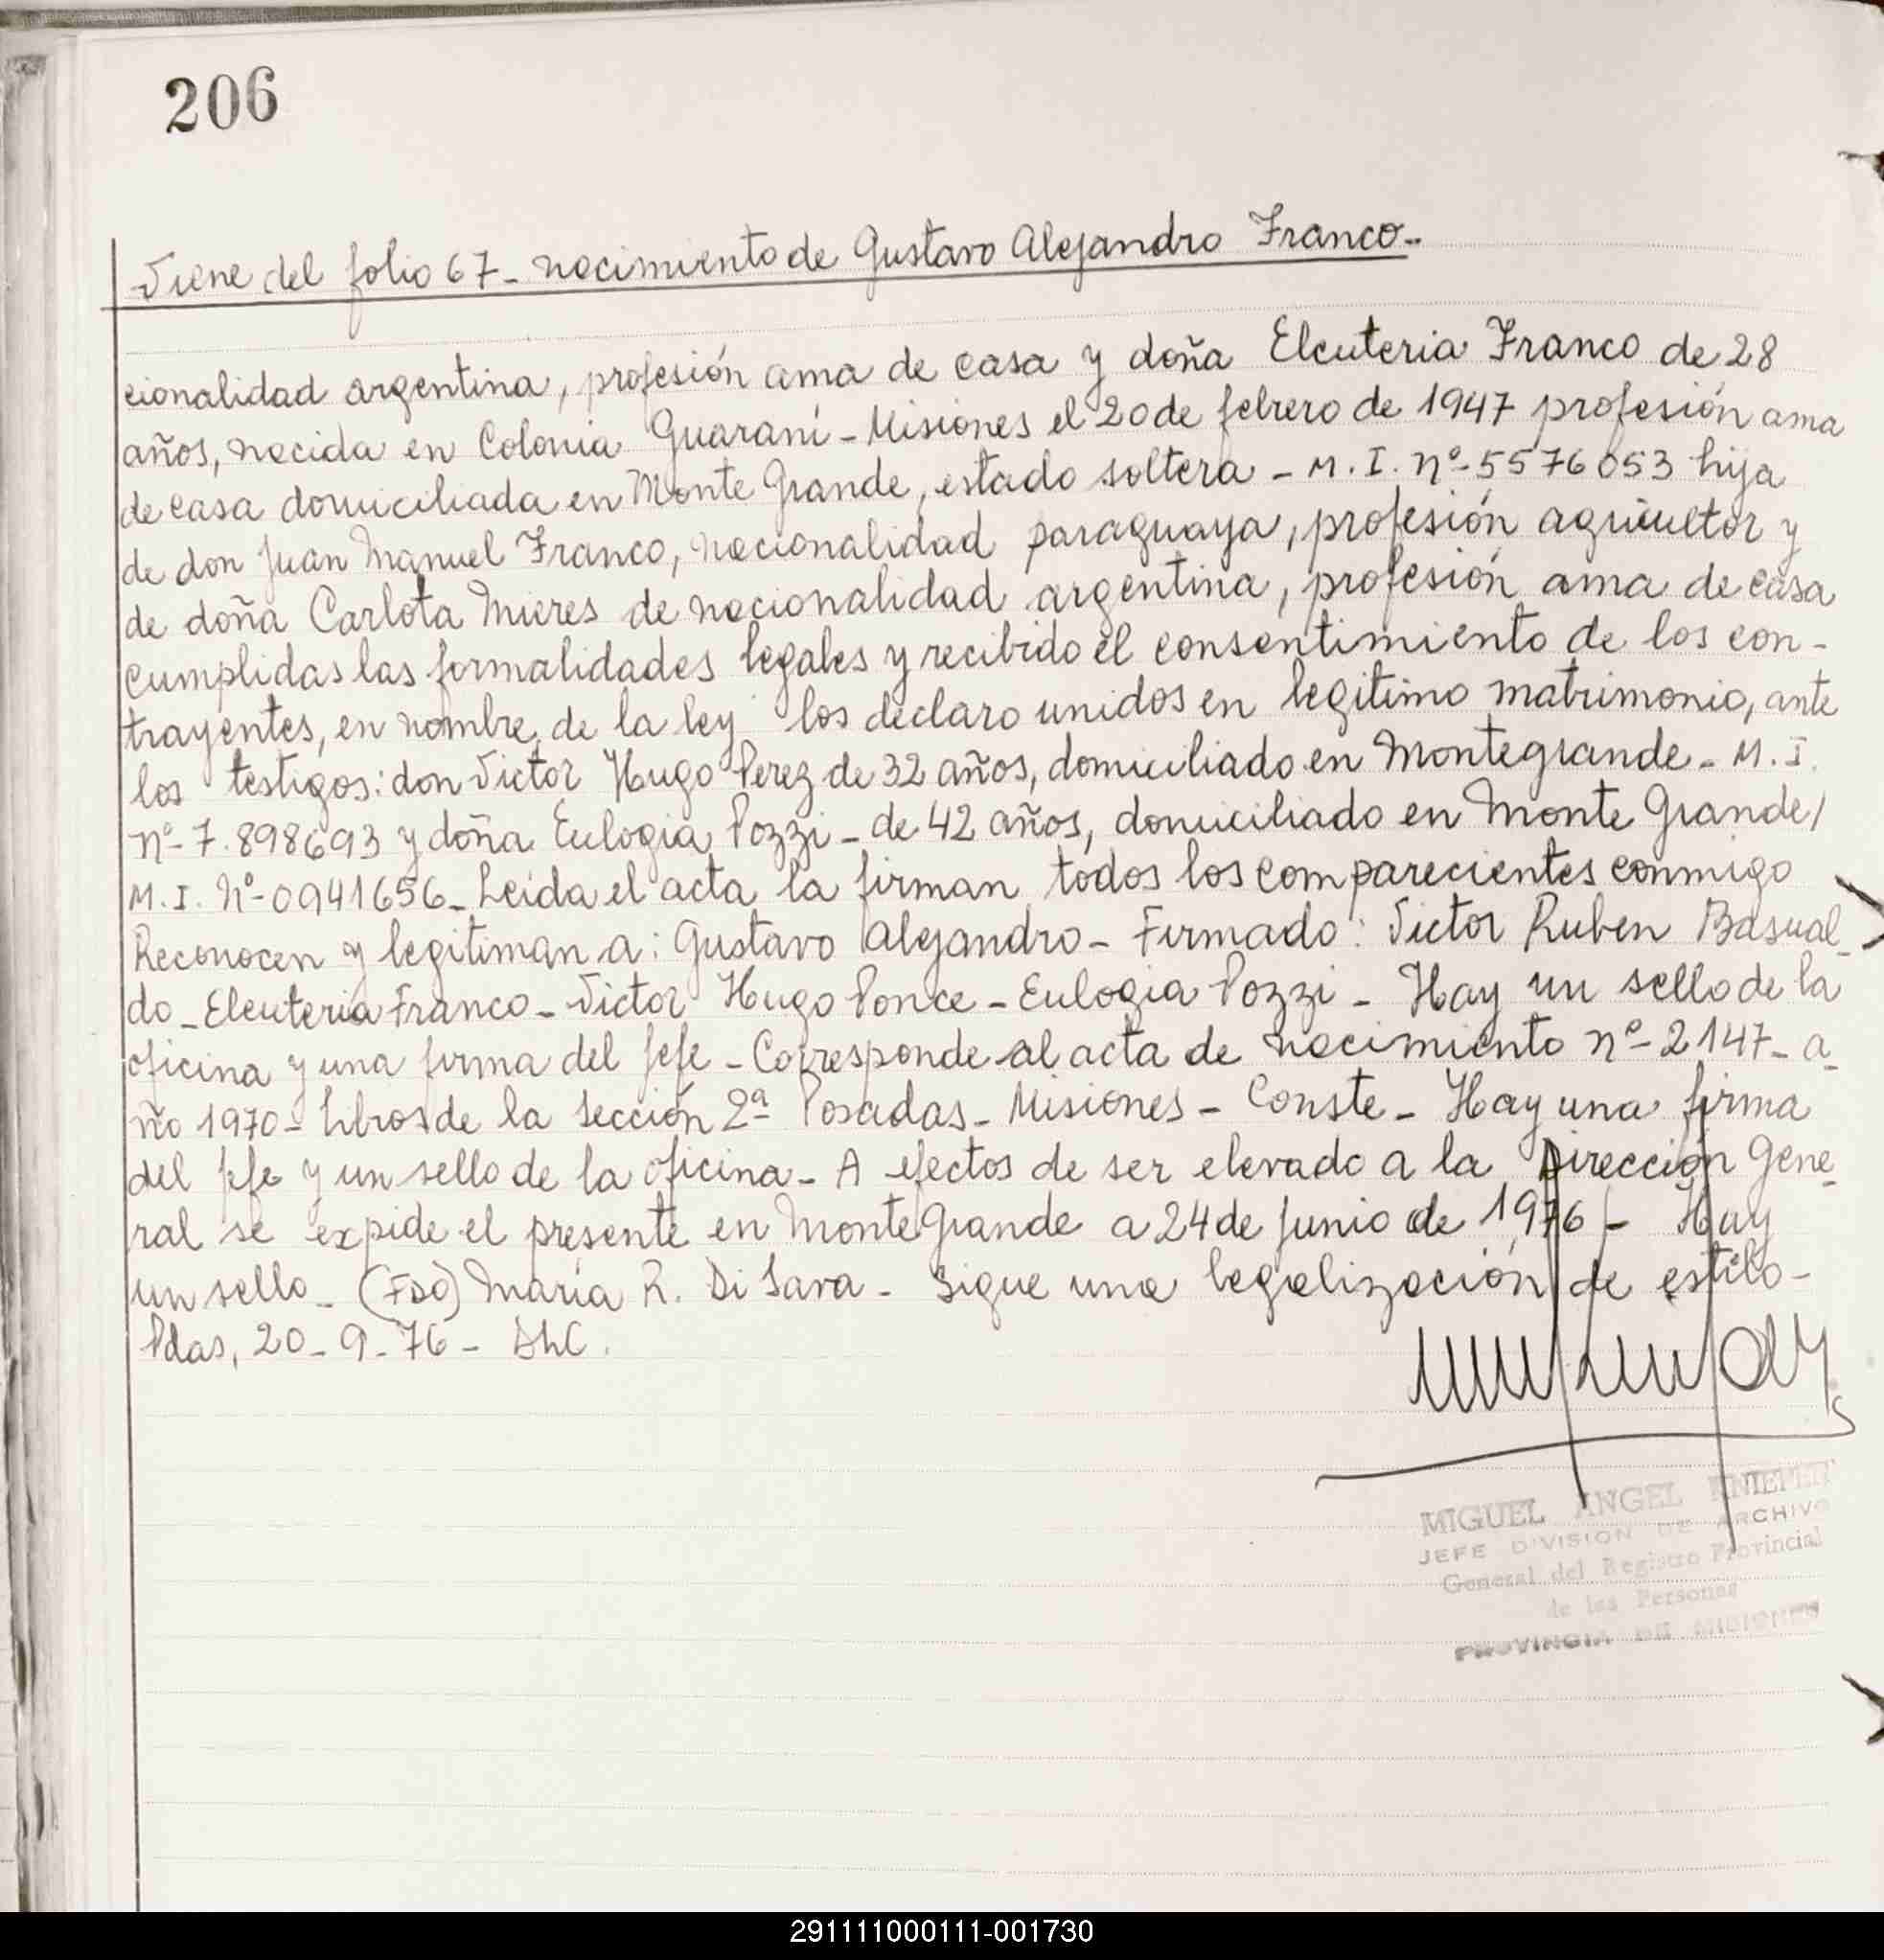 206
Viene del folio 67 - nacimiento de Gustavo Alejandro Franco.-
cionalidad argentina, profesión ama de casa y doña Eleuteria Franco de 28
años, nacida en Colonia Guaraní - Misiones el 20 de febrero de 1947 profesión ama
de casa domiciliada en Monte Grande, estado soltera - M. I. nº - 5576053 hija
de don Juan Manuel Franco, nacionalidad paraguaya, profesión agricultor y
de doña Carlota Mieres de nacionalidad argentina, profesión ama de casa
cumplidas las formalidades legales y recibido el consentimiento de los con-
trayentes, en nombre de la ley los declaro unidos en legitimo matrimonio, ante
los testigos: don Victor Hugo Perez de 32 años, domiciliado en Montegrande - M. I.
nº - 7.898693 y doña Eulogia Pozzi - de 42 años, domiciliado en Monte Grande/
M. I. Nº - 0941656 - Leida el acta la firman todos los comparecientes conmigo
Reconocen y legitiman a: Gustavo Alejandro - Firmado: Victor Ruben Basual-
do - Eleuteria Franco - Victor Hugo Ponce - Eulogia Pozzi - Hay un sello de la
oficina y una firma del jefe - Corresponde al acta de nacimiento nº - 2147 - a-
ño 1970 - Libros de la Sección 2ª Posadas - Misiones - Conste - Hay una firma
del jefe y un sello de la oficina - A efectos de ser elevado a la Dirección Gene-
ral se expide el presente en Monte Grande a 24 de junio de 1976 - Hay
un sello - (FDO) María R. Di Sava - Sigue una legalización de estilo -
Pdas, 20 - 9 - 76 -
MIGUEL ANGEL
JEFE DIVISION DE ARCHIVO
General del Registro Provincial
de las Personas
PROVINCIA DE MISIONES
291111000111-001730